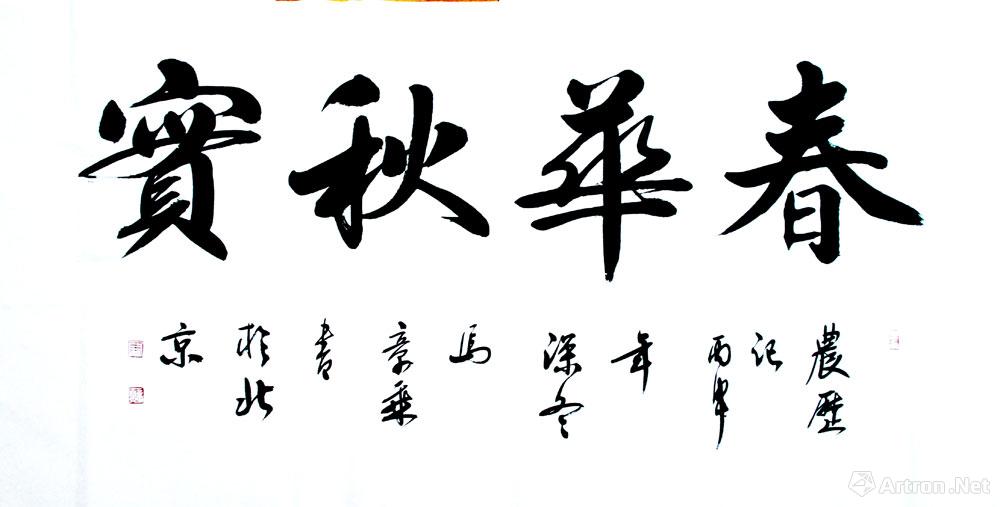 春華秋實
農歷
记
丙申
年
深冬
馬
章乘
書
於北
京
Artron.Net